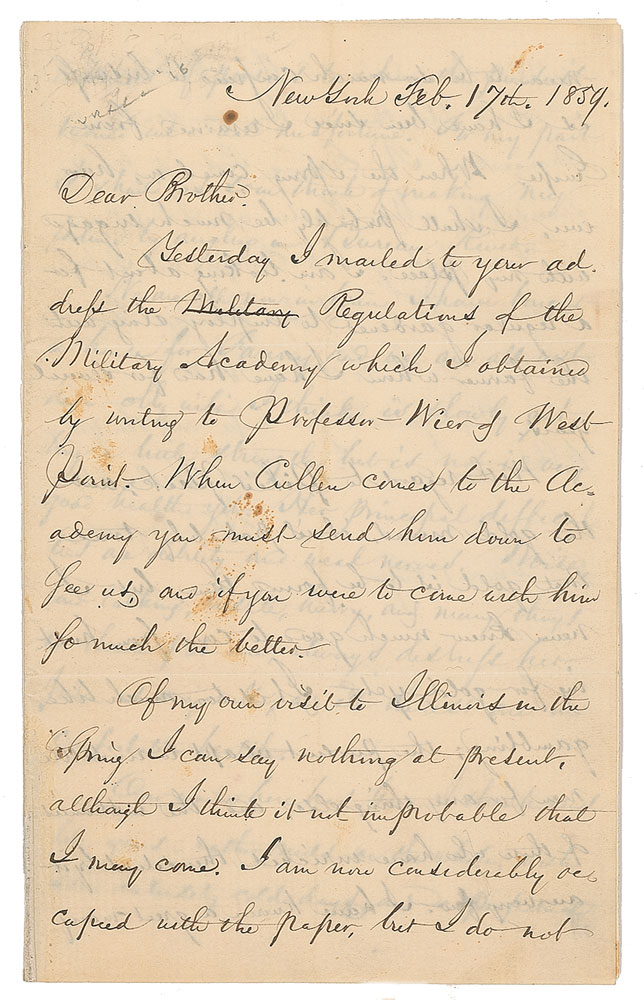 New York Feb. 17th. 1859.
Dear Brother.
Yesterday I mailed to your ad-
dress the Military Regulations of the
Military Academy which I obtained
by writing to Professor Wier of West
Point. When Cullen comes to the Ac-
ademy you must send him down to
see us, and if you were to come with him
so much the better.
Of my own visit to Illinois in the
Spring I can say nothing at present,
although I think it not improbable that
I may come. I am now considerably oc-
cupied with the paper, but I do not